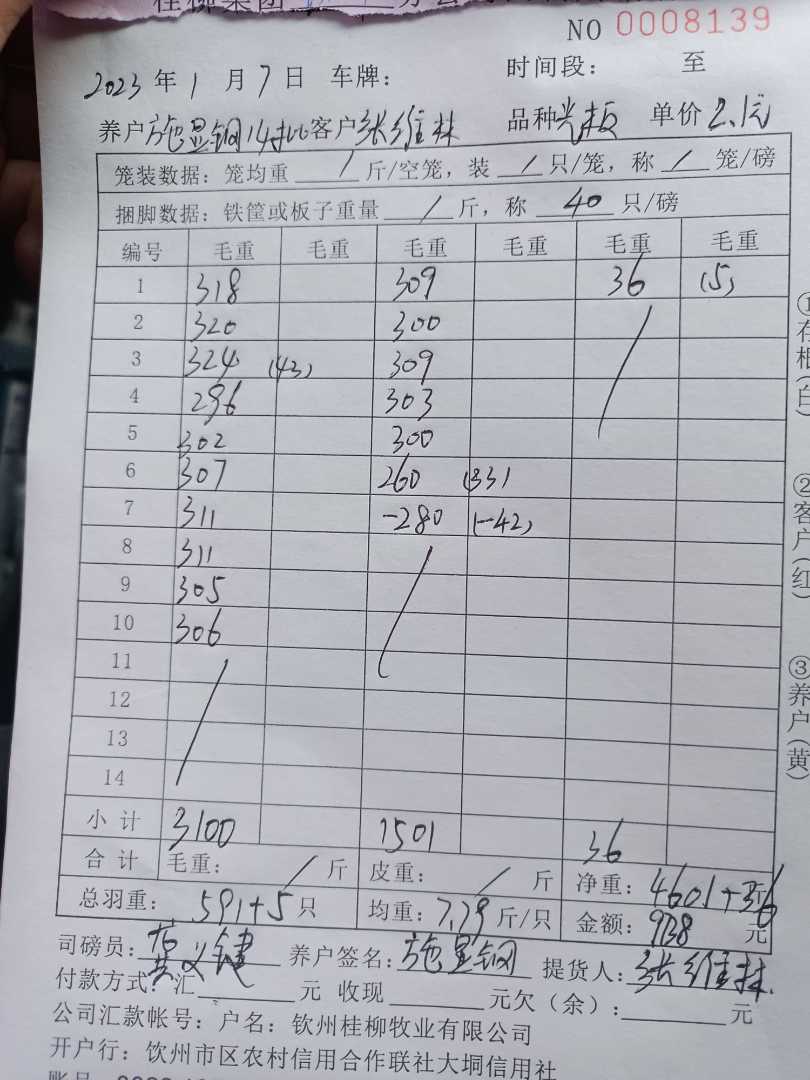 桂柳集团
NO 0008139
2023 年 1 月 7 日 车牌: 时间段: 至
养户 施显钢 14批 客户 张维林 品种 光板 单价 2.1元
笼装数据: 笼均重 / 斤/空笼, 装 / 只/笼, 称 / 笼/磅
捆脚数据: 铁筐或板子重量 / 斤, 称 40 只/磅
编号 毛重 毛重 毛重 毛重 毛重 毛重
1 318 309 36 (5)
2 320 300
3 324 (43) 309
4 296 303
5 302 300
6 307 260 (33)
7 311 -280 (-42)
8 311
9 305
10 306
11
12
13
14
小计 3100 1501 36
合计 毛重: / 斤 皮重: / 斤 净重: 4601+36 斤
总羽重: 591+5 只 均重: 7.79 斤/只 金额: 9738 元
司磅员: 黄义键 养户签名: 施显钢 提货人: 张维林
付款方式: 汇 元 收现 元欠(余): 元
公司汇款帐号: 户名: 钦州桂柳牧业有限公司
开户行: 钦州市区农村信用合作联社大垌信用社
①存根(白) ②客户(红) ③养户(黄)